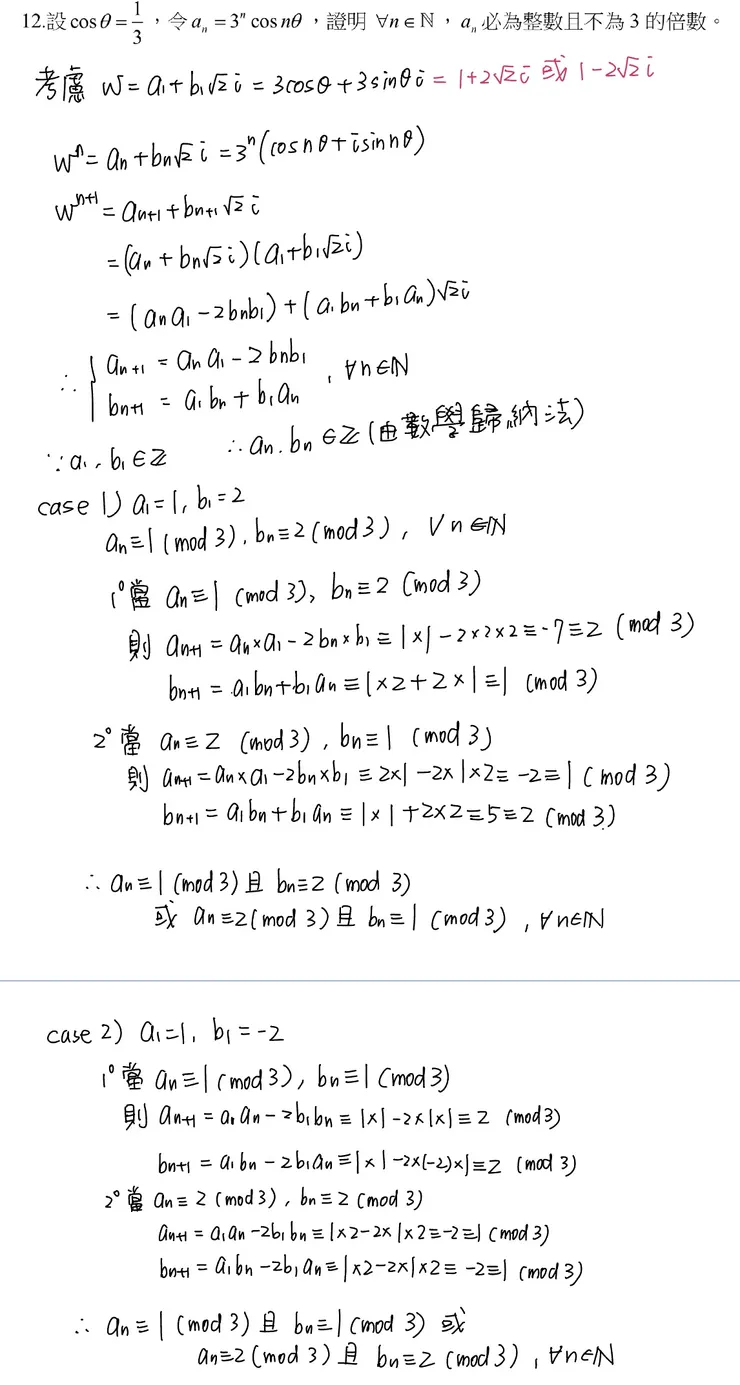 12.設 cosθ = 1/3，令 aₙ = 3ⁿ cos nθ，證明 ∀n∈ℕ，aₙ 必為整數且不為 3 的倍數。
考慮 W = a₁ + b₁√2 i = 3cosθ + 3sinθ i = 1+2√2 i 或 1-2√2 i
Wⁿ = aₙ + bₙ√2 i = 3ⁿ(cos nθ + i sin nθ)
Wⁿ⁺¹ = aₙ₊₁ + bₙ₊₁√2 i
= (aₙ + bₙ√2 i)(a₁ + b₁√2 i)
= (aₙa₁ - 2bₙb₁) + (a₁bₙ + b₁aₙ)√2 i
∴ { aₙ₊₁ = aₙa₁ - 2bₙb₁
bₙ₊₁ = a₁bₙ + b₁aₙ , ∀n∈ℕ
∵ a₁, b₁∈ℤ ∴ aₙ, bₙ∈ℤ (由數學歸納法)
case 1) a₁=1, b₁=2
aₙ≡1 (mod 3), bₙ≡2 (mod 3), ∀n∈ℕ
1° 當 aₙ≡1 (mod 3), bₙ≡2 (mod 3)
則 aₙ₊₁ = aₙ×a₁ - 2bₙ×b₁ ≡ 1×1 - 2×2×2 ≡ -7 ≡ 2 (mod 3)
bₙ₊₁ = a₁bₙ + b₁aₙ ≡ 1×2 + 2×1 ≡ 1 (mod 3)
2° 當 aₙ≡2 (mod 3), bₙ≡1 (mod 3)
則 aₙ₊₁ = aₙ×a₁ - 2bₙ×b₁ ≡ 2×1 - 2×1×2 ≡ -2 ≡ 1 (mod 3)
bₙ₊₁ = a₁bₙ + b₁aₙ ≡ 1×1 + 2×2 ≡ 5 ≡ 2 (mod 3)
∴ aₙ≡1 (mod 3) 且 bₙ≡2 (mod 3)
或 aₙ≡2 (mod 3) 且 bₙ≡1 (mod 3), ∀n∈ℕ
case 2) a₁=1, b₁=-2
1° 當 aₙ≡1 (mod 3), bₙ≡1 (mod 3)
則 aₙ₊₁ = a₁aₙ - 2b₁bₙ ≡ 1×1 - 2×1×1 ≡ 2 (mod 3)
bₙ₊₁ = a₁bₙ - 2b₁aₙ ≡ 1×1 - 2×(-2)×1 ≡ 2 (mod 3)
2° 當 aₙ≡2 (mod 3), bₙ≡2 (mod 3)
aₙ₊₁ = a₁aₙ - 2b₁bₙ ≡ 1×2 - 2×1×2 ≡ -2 ≡ 1 (mod 3)
bₙ₊₁ = a₁bₙ - 2b₁aₙ ≡ 1×2 - 2×1×2 ≡ -2 ≡ 1 (mod 3)
∴ aₙ≡1 (mod 3) 且 bₙ≡1 (mod 3) 或
aₙ≡2 (mod 3) 且 bₙ≡2 (mod 3), ∀n∈ℕ